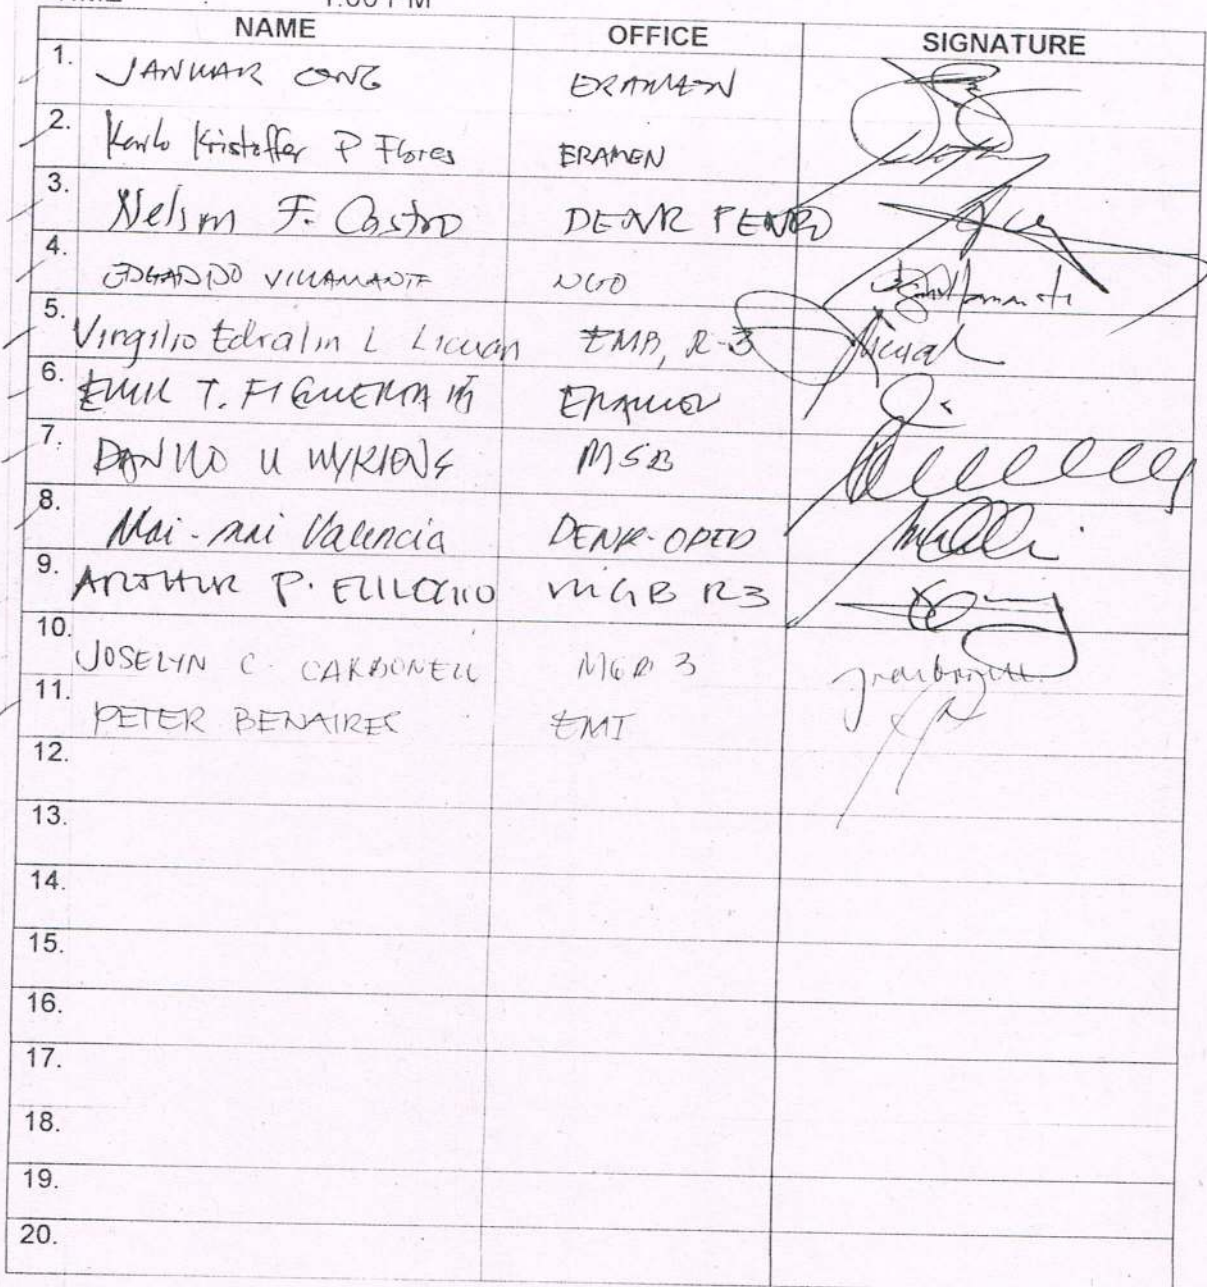 1:00 PM
NAME OFFICE SIGNATURE
1. JANUAR ONG ERAMEN
2. Karlo Kristoffer P Flores ERAMEN
3. Nelson F. Castro DENR PENRO
4. EDGARDO VILLAMANTE NGO
5. Virgilio Edralin L Licuan EMB, R-3
6. EMIL T. FIGUEROA III ERAMEN
7. DANILO U
8. Mai-mai Valencia DENR-
9. ARTHUR P. EULOGIO MGB R3
10. JOSELYN C. CARBONELL MGB 3
11. PETER BENAIRES EMI
12.
13.
14.
15.
16.
17.
18.
19.
20.